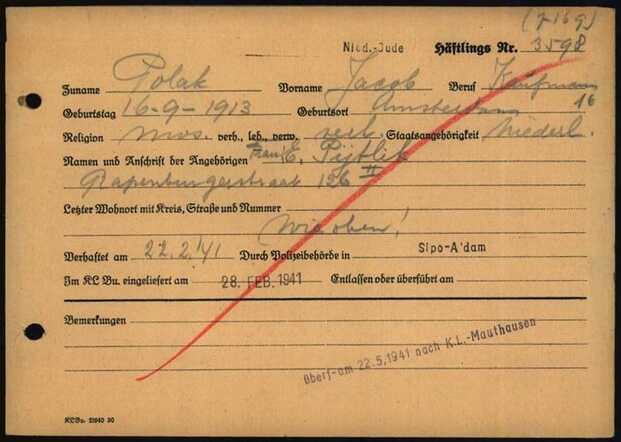 (7-16 9)
Nied.-Jude Häftlings Nr. 3598
Zuname Polak Vorname Jacob Beruf Kaufmann
16
Geburtstag 16-9-1913 Geburtsort Amsterdam
Religion mos. verh., led., verw. verh. Staatsangehörigkeit Niederl.
Namen und Anschrift der Angehörigen Frau: E. Pijtlik
Rapenburgerstraat 126 II
Letzter Wohnort mit Kreis, Straße und Nummer
Wie oben!
Verhaftet am 22.2.41 Durch Polizeibehörde in Sipo-A'dam
Im KC Bu. eingeliefert am 28. FEB. 1941 Entlassen oder überführt am
Bemerkungen
überf. am 22.5.1941 nach K.L.-Mauthausen